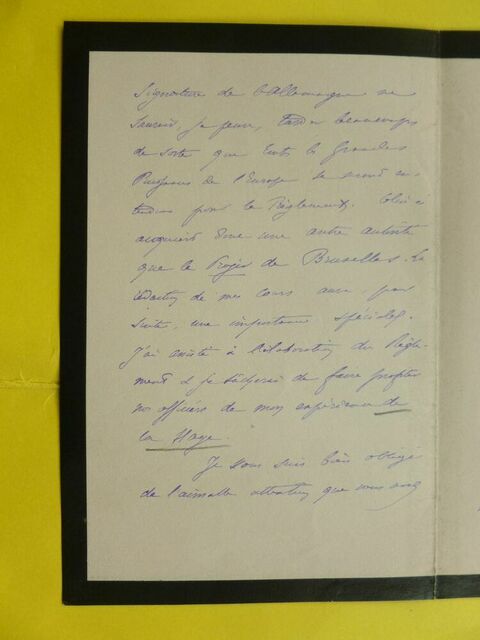 Signature de l'Allemagne ne
saurait, je pense, tarder beaucoup
de sorte que toutes les Grandes
Puissances de l'Europe se seront en-
tendues pour le Règlement. Celui-ci
acquiert donc une autre autorité
que le Projet de Bruxelles. La
rédaction de mes cours aura, par
suite, une importance spéciale.
J'ai assisté à l'élaboration du Règle-
ment & je tâcherai de faire profiter
nos officiers de mon expérience de
la Haye.
Je vous suis bien obligé
de l'aimable attention que vous avez